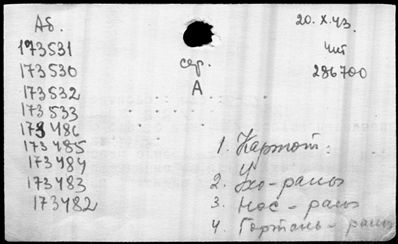 Аб.
173531
173530
173532
173533
173486
173485
173484
173483
173482
сер.
А
20.X.43.
Чит
286700
1. Картот:
2. Ухо-раны
3. Нос-раны
4. Гортань-раны